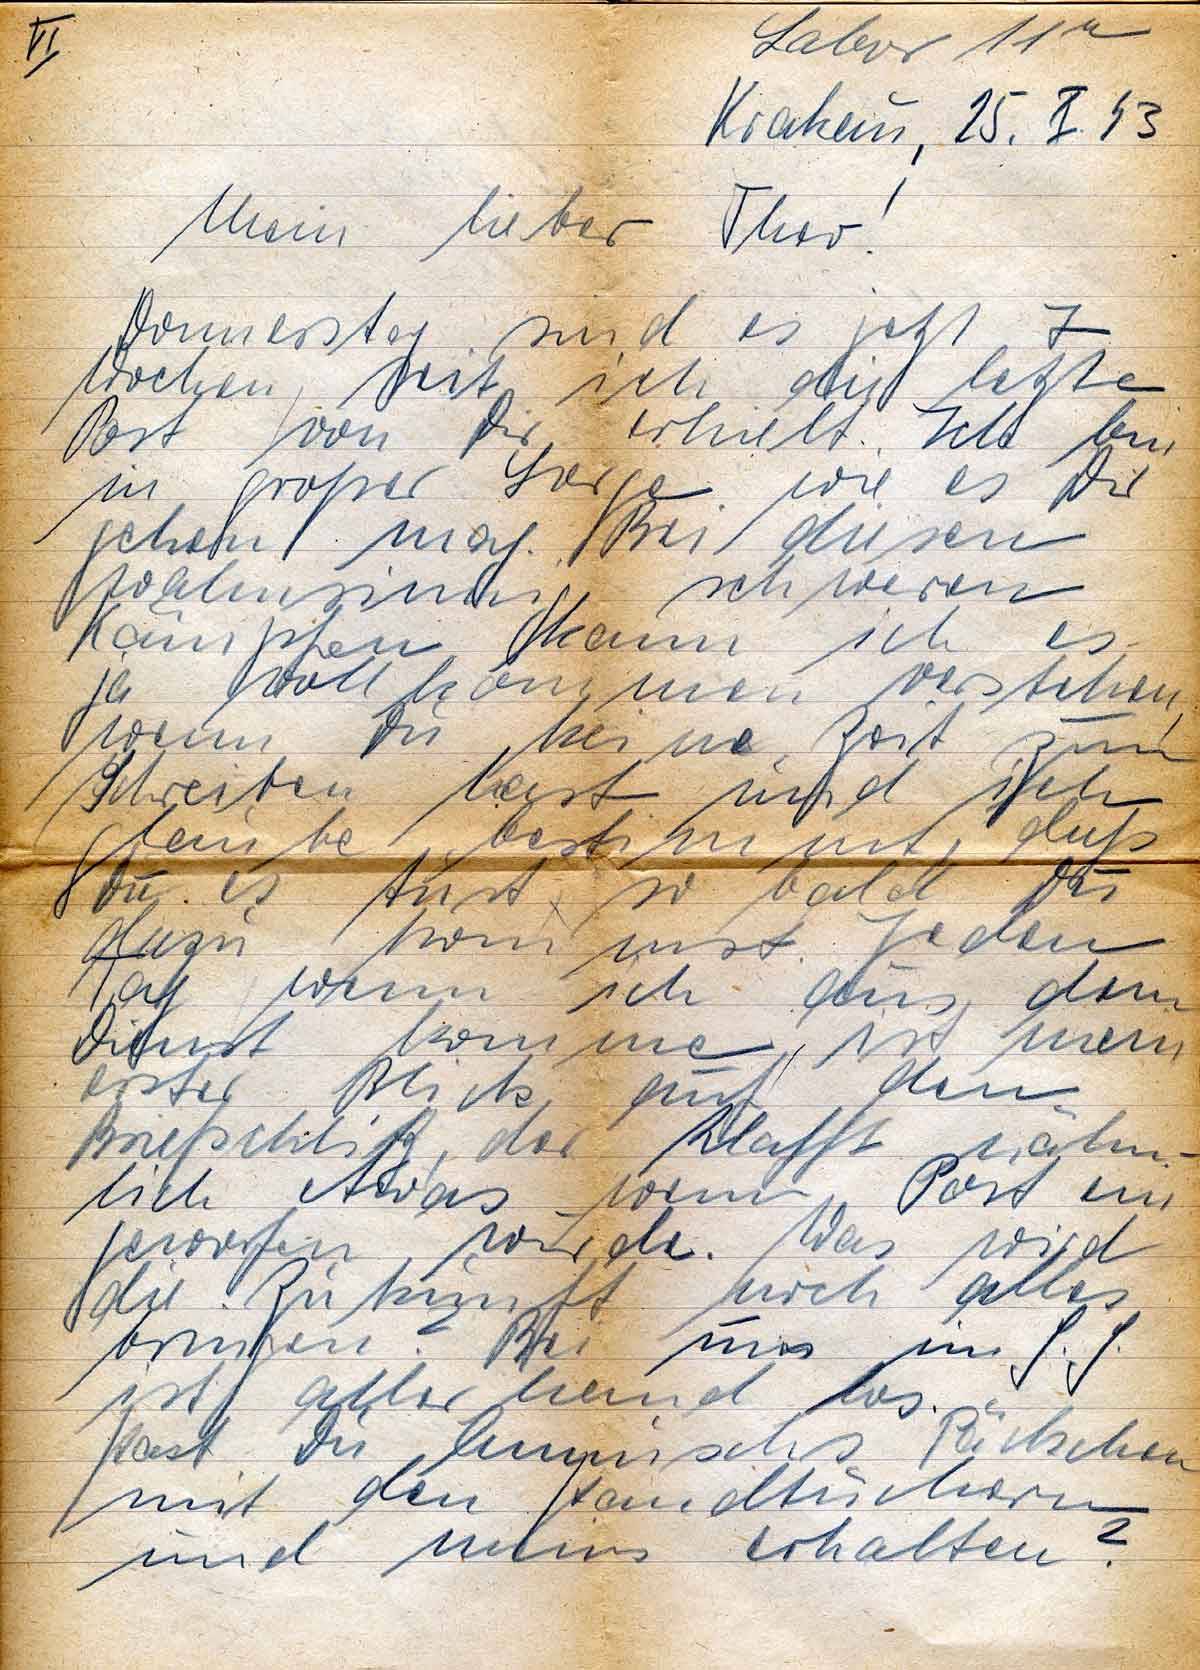 VI
Labor 11
Krakau, 25. X. 43
Mein lieber Theo!
Donnerstag sind es jetzt 7
Wochen, seit ich die letzte
Post von Dir erhielt. Ich bin
in großer Sorge wie es Dir
gehen mag. Bei diesen
wahnsinnig schweren
Kämpfen kann ich es
ja vollkommen verstehen,
wenn Du keine Zeit zum
Schreiben hast und ich
glaube bestimmt, daß
Du es tust, so bald Du
dazu kommst. Jeden
Tag wenn ich aus dem
Dienst komme, ist mein
erster Blick auf den
Briefschlitz, der klafft näm-
lich etwas, wenn Post ein
geworfen wurde. Was wird
die Zukunft noch alles
bringen? Bei uns im G.G.
ist allerhand los.
Hast Du Päckchen
mit den Handtüchern
und meins erhalten?